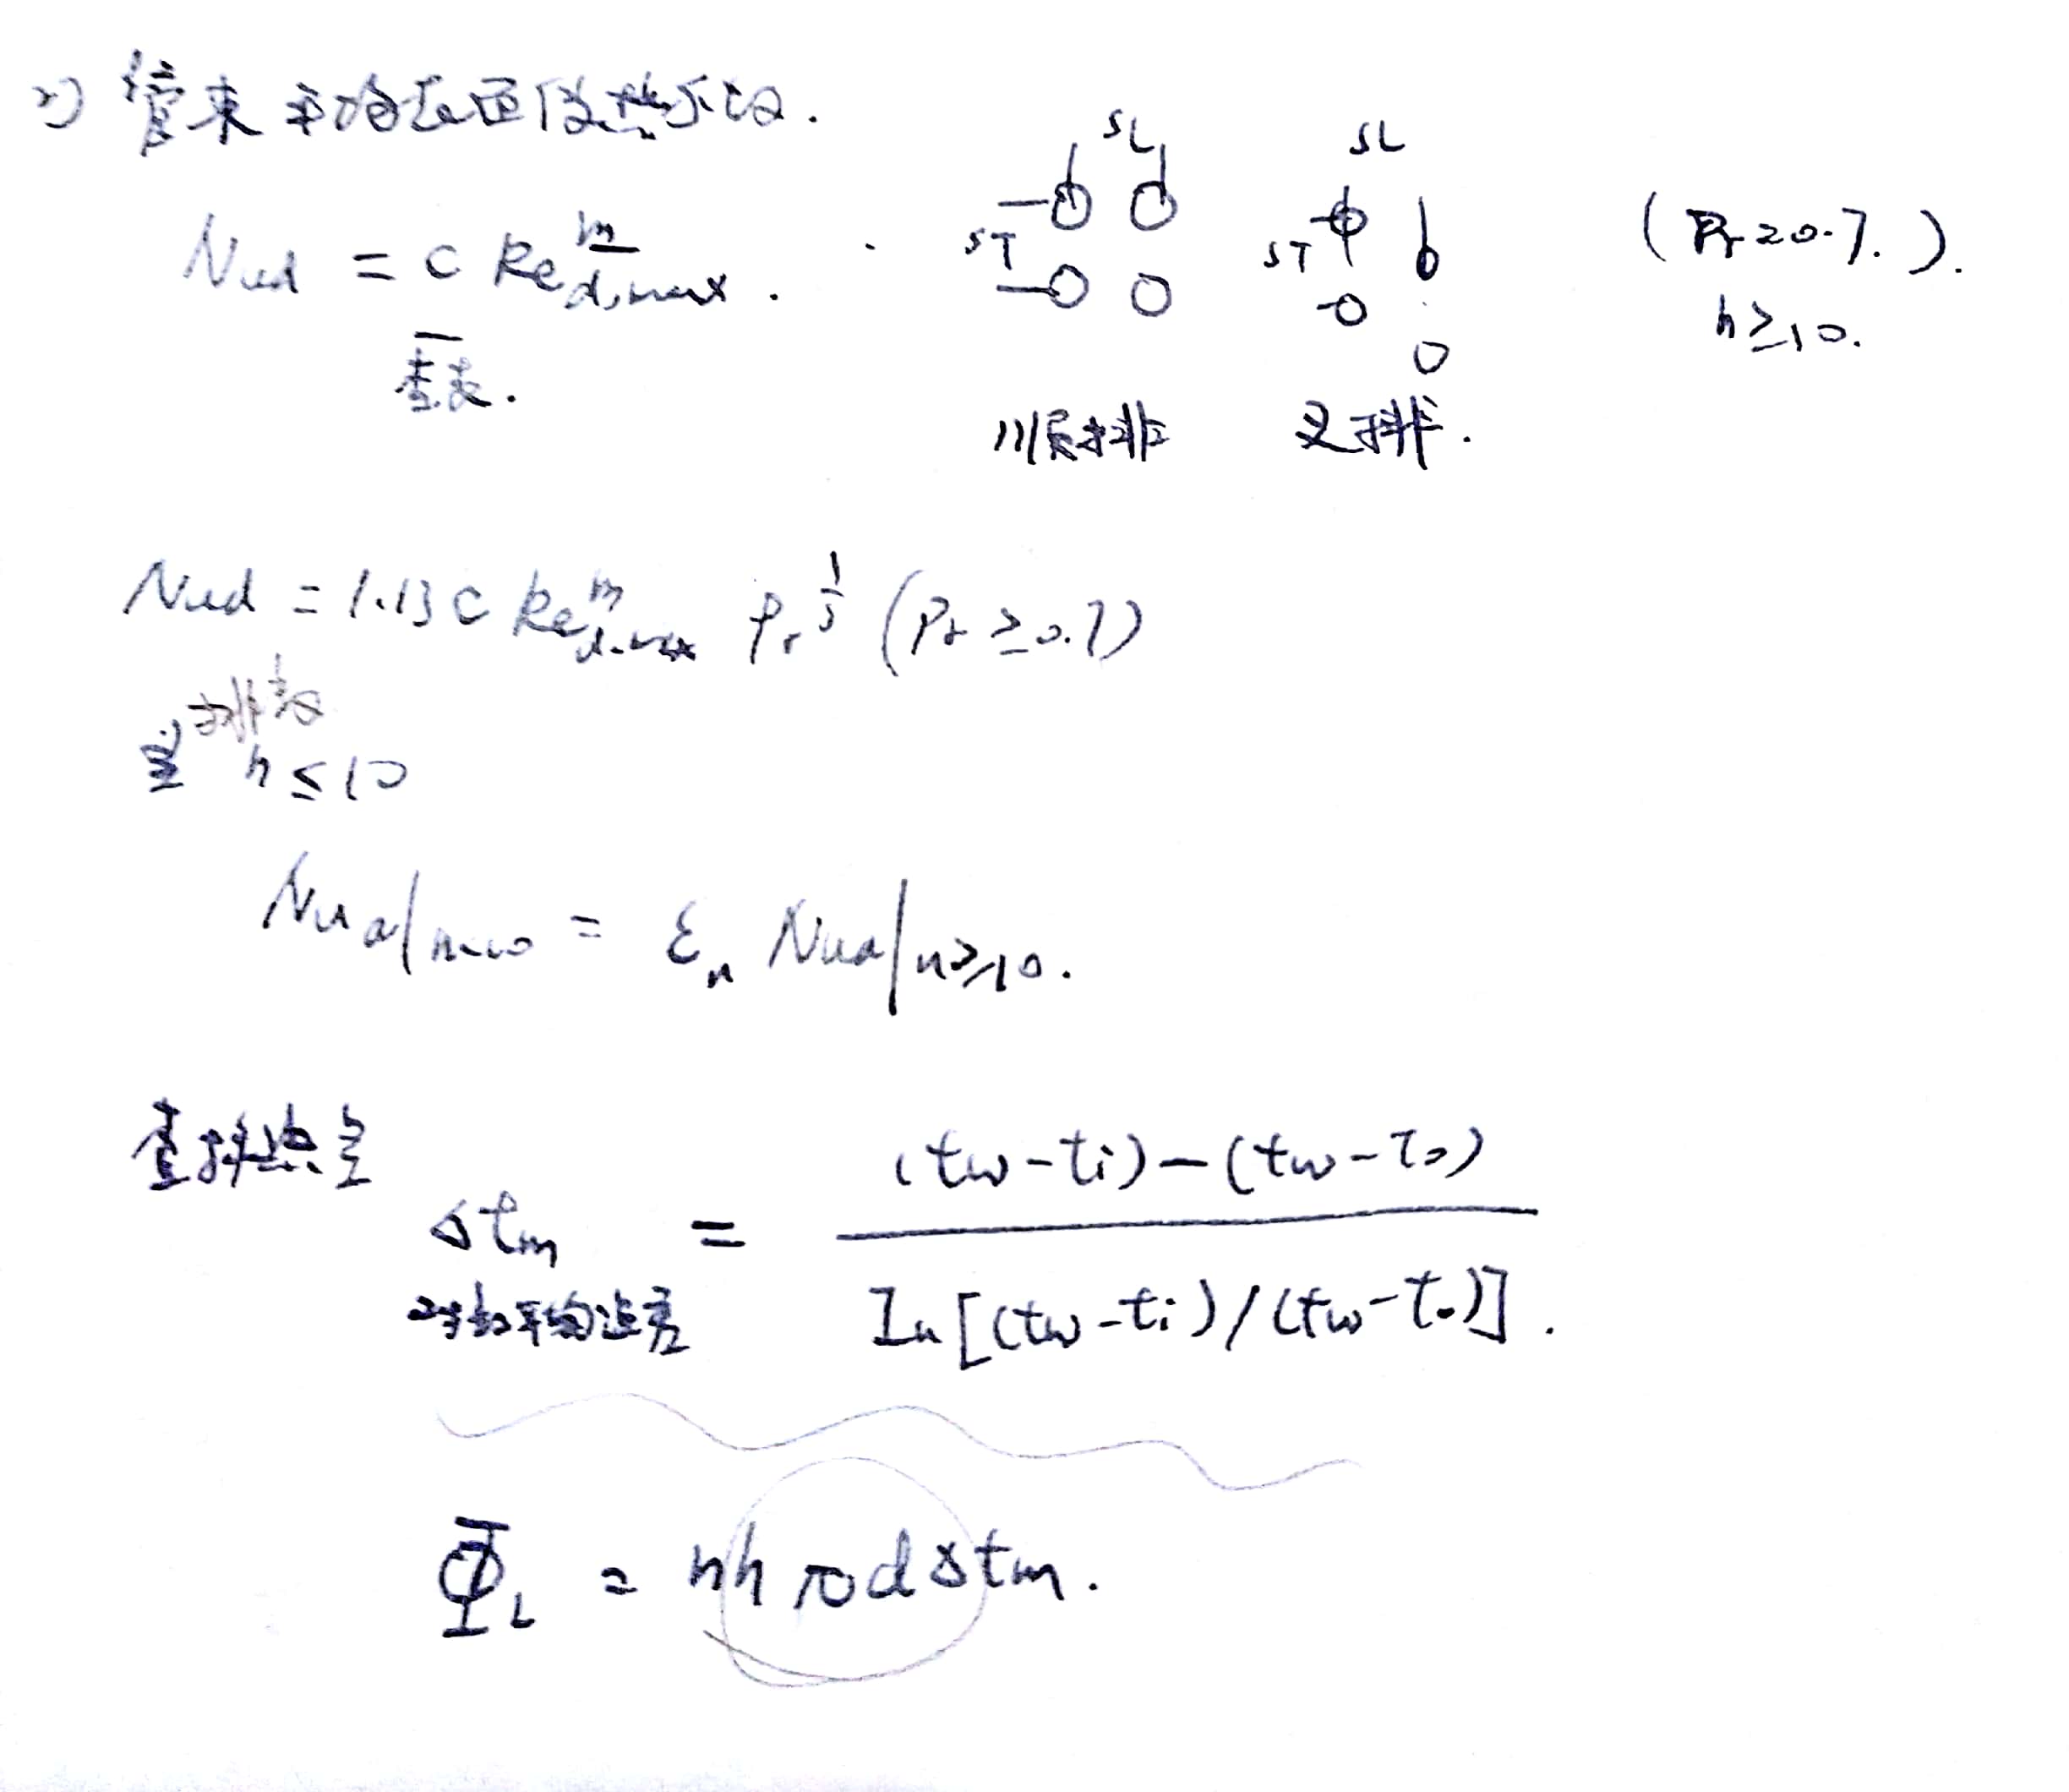 2) 管束平均表面传热系数.
Nud = C Re^m d,max .
查表.
SL SL
ST ST
(Pr≥0.7.).
n≥10.
顺排 叉排.
Nud = 1.13 C Re^m d,max Pr^1/3 (Pr ≥0.7)
排数
n≤10
Nud|n<10 = εn Nud|n≥10.
Δtm = (tw-ti)-(tw-to) / In[(tw-ti)/(tw-to)].
对数平均温差
ΦL = nhπdΔtm.